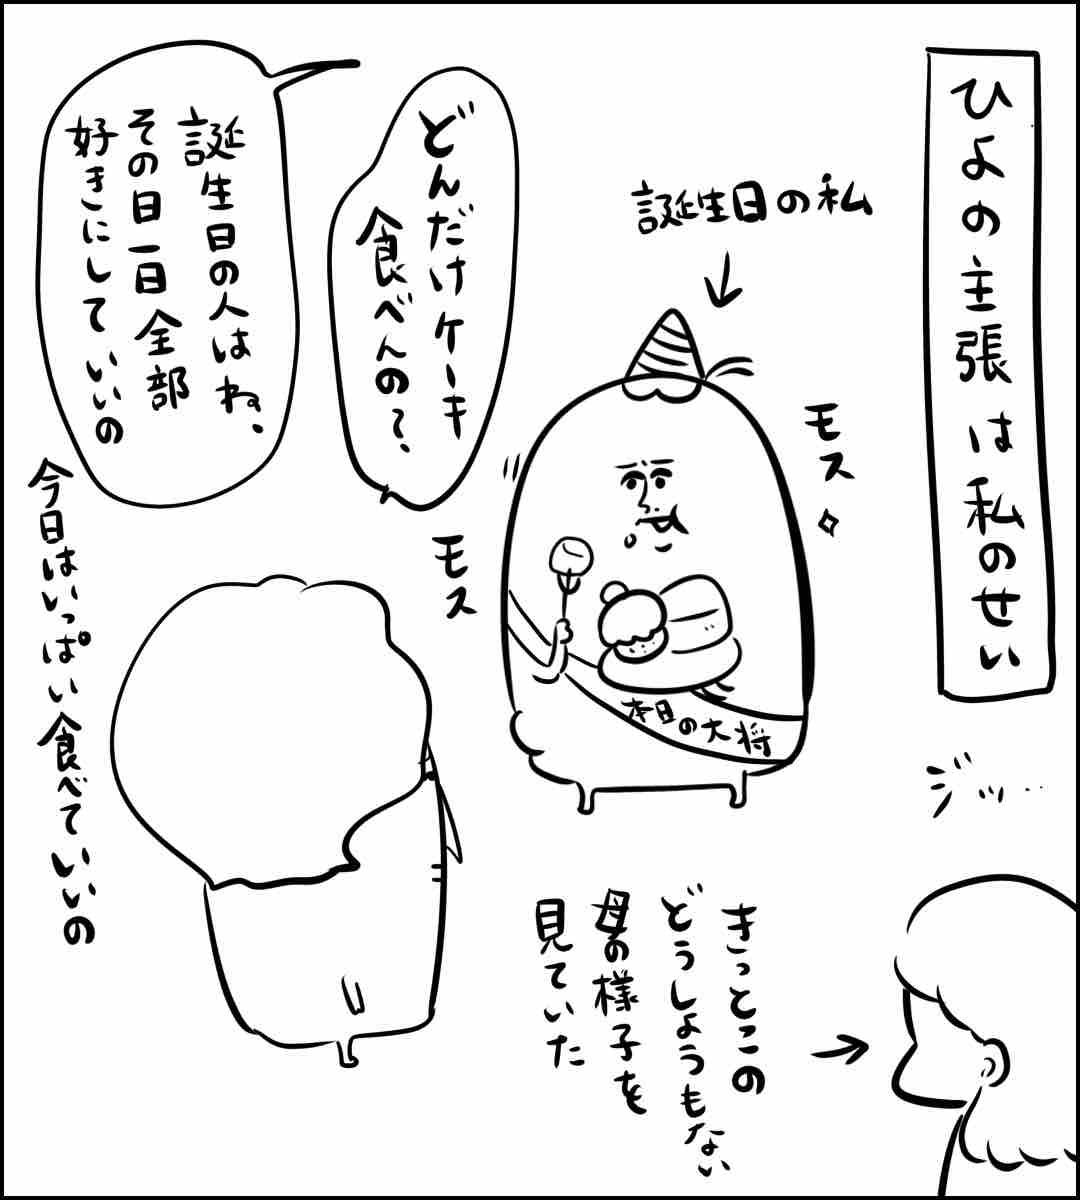 ひよの主張は私のせい
誕生日の私
モス
どんだけケーキ
食べんの?
誕生日の人はね、
その日一日全部
好きにしていいの
モス
今日はいっぱい食べていいの
本日の大将
きっとこの
どうしようもない
母の様子を
見ていた